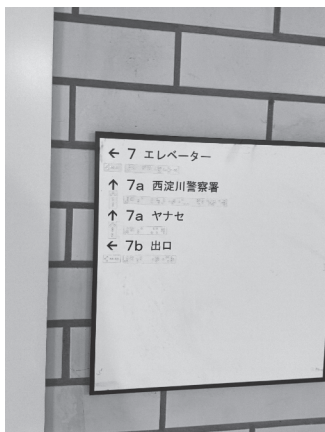 ← 7 エレベーター
↑ 7a 西淀川警察署
↑ 7a ヤナセ
← 7b 出口